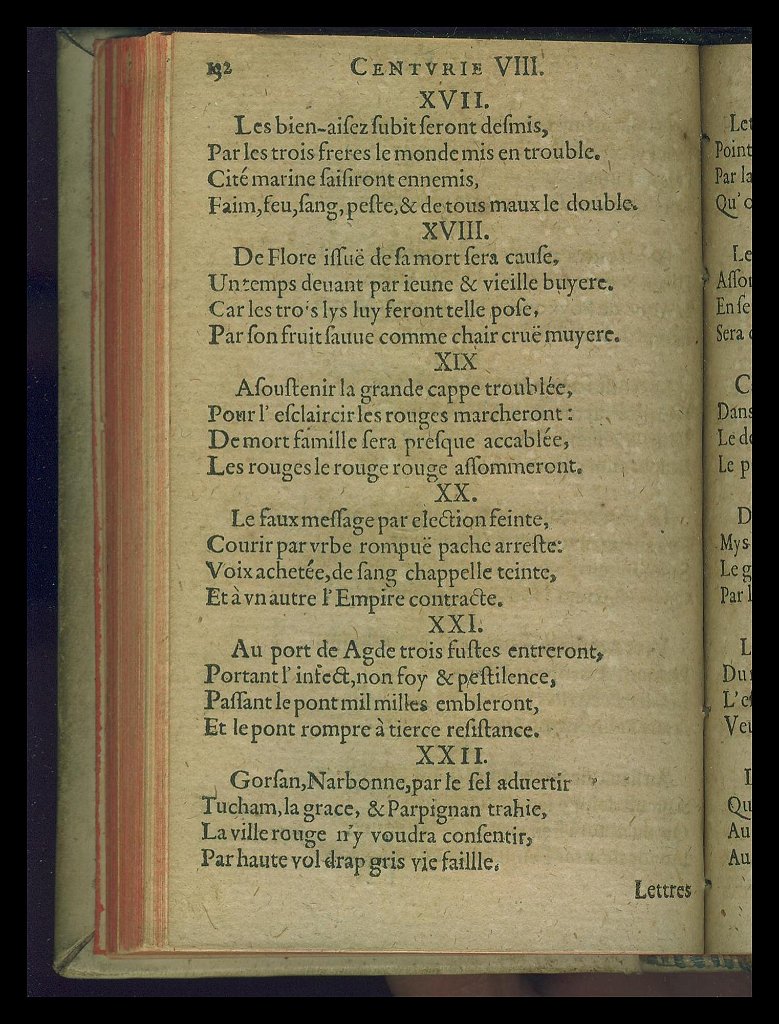 132 CENTVRIE VIII.
XVII.
Les bien-aiſez ſubit ſeront deſmis,
Par les trois freres le monde mis en trouble.
Cité marine ſaiſiront ennemis,
Faim, feu, ſang, peſte, & de tous maux le double.
XVIII.
De Flore iſſuë de ſa mort ſera cauſe,
Un temps deuant par ieune & vieille buyere.
Car les trois lys luy feront telle poſe,
Par ſon fruit ſauue comme chair cruë muyere.
XIX
A ſouſtenir la grande cappe troublée,
Pour l' eſclaircir les rouges marcheront :
De mort famille ſera preſque accablée,
Les rouges le rouge rouge aſſommeront.
XX.
Le faux meſſage par election feinte,
Courir par vrbe rompuë pache arreſte:
Voix achetée, de ſang chappelle teinte,
Et à vn autre l'Empire contracte.
XXI.
Au port de Agde trois fuſtes entreront,
Portant l' infect, non foy & peſtilence,
Paſſant le pont mil milles embleront,
Et le pont rompre à tierce reſiſtance.
XXII.
Gorſan, Narbonne, par le ſel aduertir
Tucham, la grace, & Parpignan trahie,
La ville rouge n'y voudra conſentir,
Par haute vol drap gris vie faillle.
Lettres
Point
Par la
Dans
Mys
Par
Au
Au